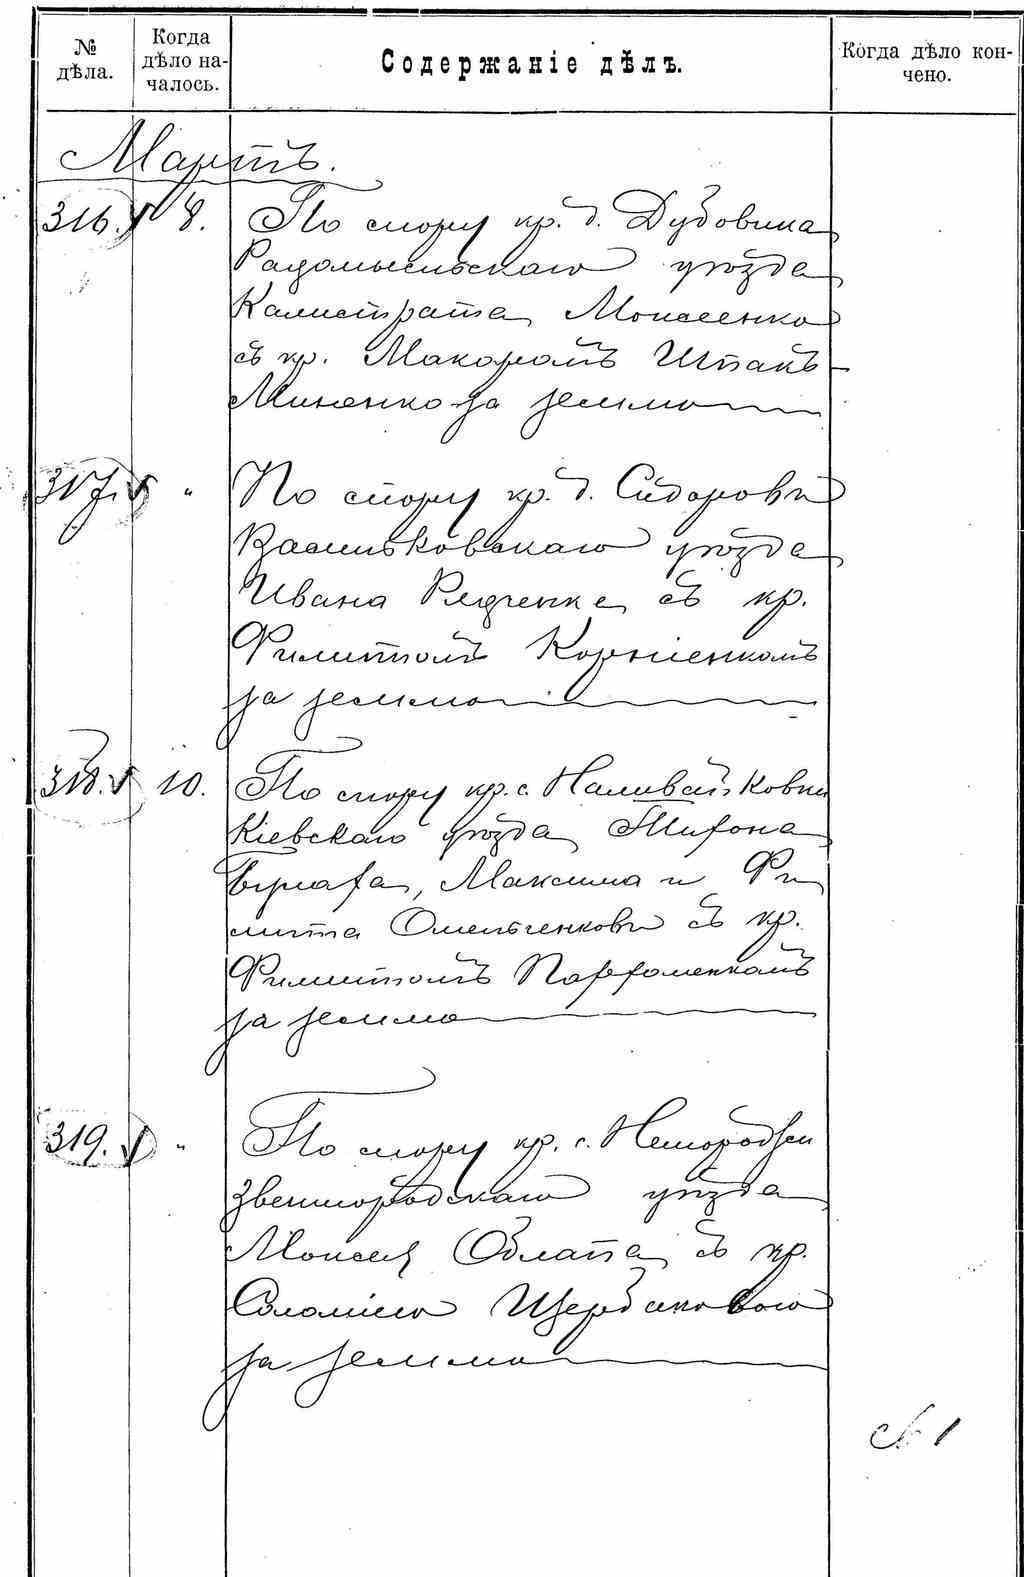 № дѣла.
Когда дѣло на-
чалось.
Содержаніе дѣлъ.
Когда дѣло кон-
чено.
Мартъ.
316. 8. По спору кр. д. Дубовика
Радомысльскаго уѣзда
Калистрата Моисеенко
съ кр. Макаромъ Шпакъ-
Миненко за землю
317. " По спору кр. д. Сидоровки
Васильковскаго уѣзда
Ивана Редченка съ кр.
Филиппомъ Корніенкомъ
за землю
318. 10. По спору кр. с. Наливайковки
Кіевскаго уѣзда Тифона
Максима и Фи
липпа Омельченковъ съ кр.
Филиппомъ Парфоменкомъ
за землю
319. " По спору кр. с.
Звенигородскаго уѣзда
Моисея съ кр.
Соломіею Щербаковою
за землю